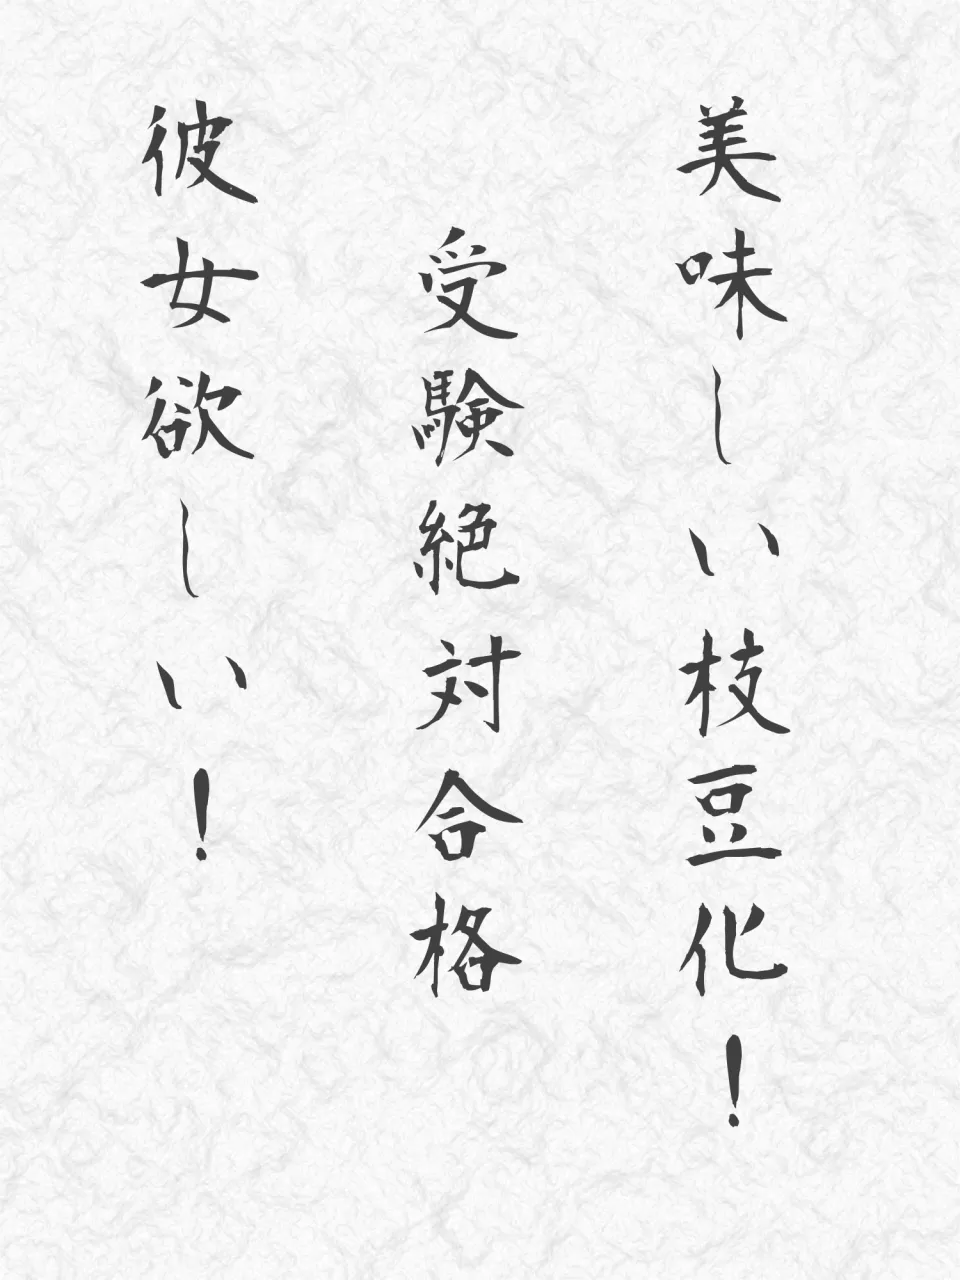 美味しい枝豆化！
受験絶対合格
彼女欲しい！